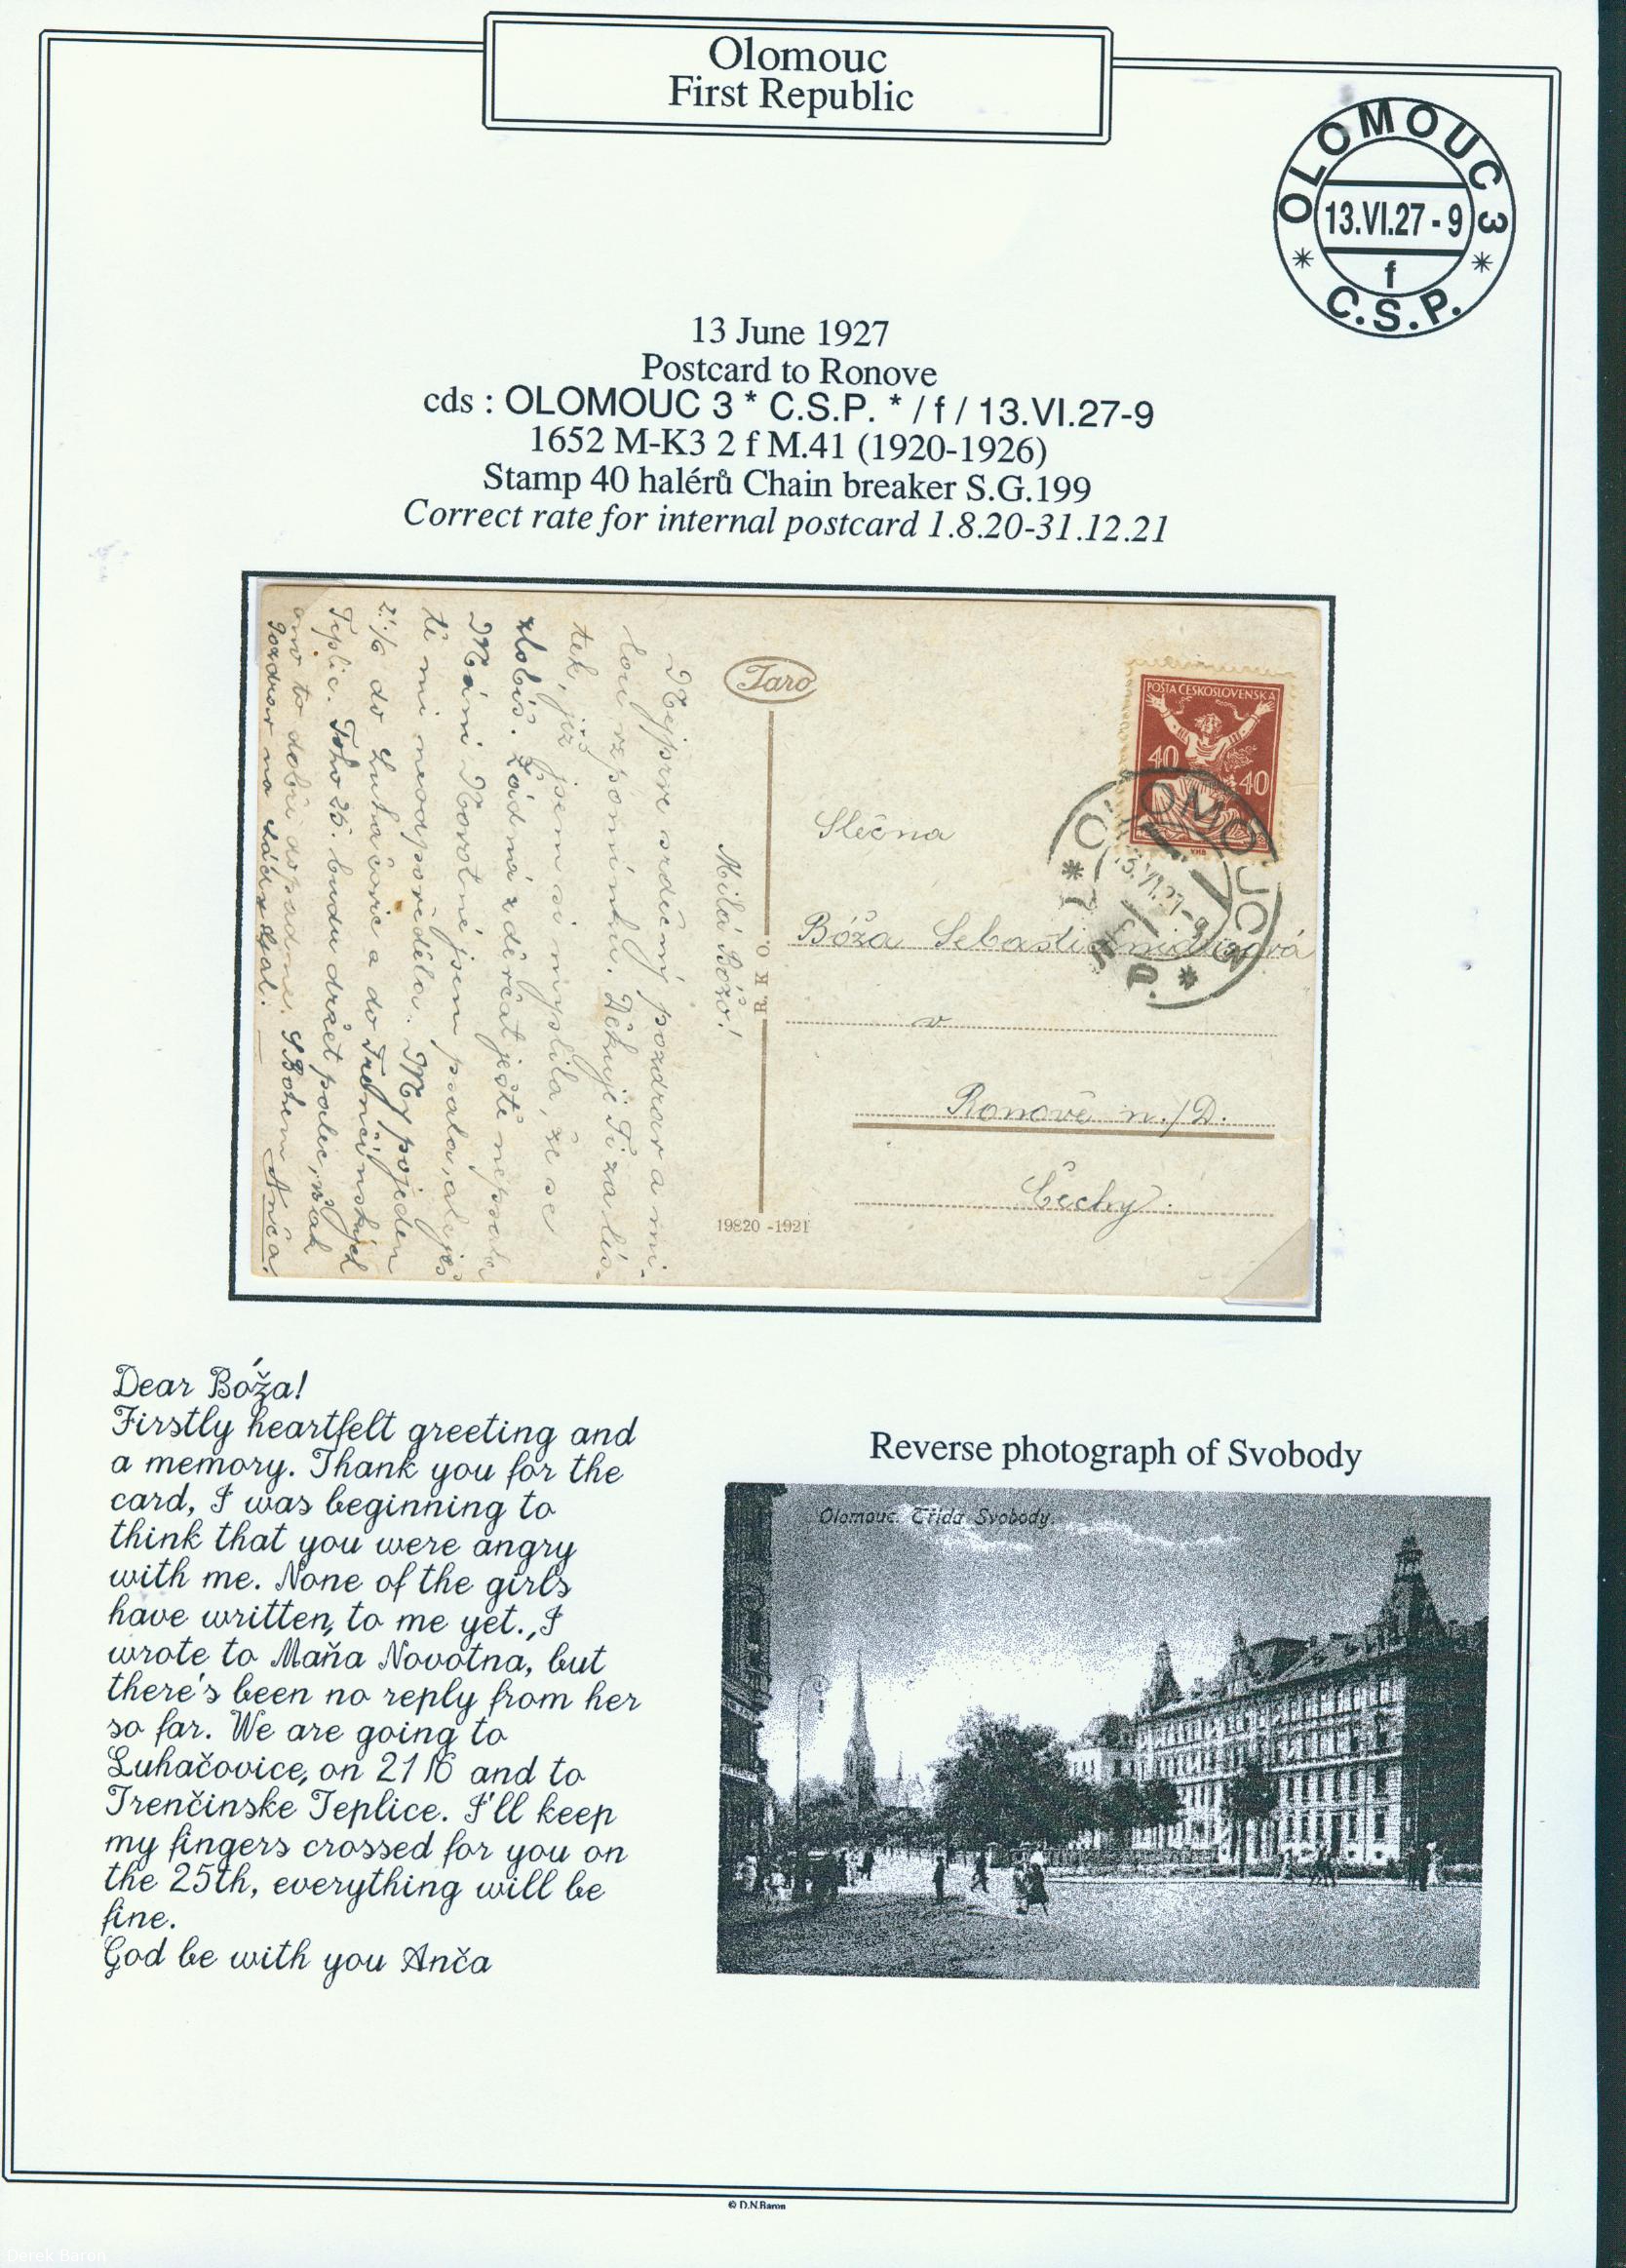 Olomouc
First Republic
OLOMOUC 3
13.VI.27 - 9
f
* C.S.P. *
13 June 1927
Postcard to Ronove
cds : OLOMOUC 3 * C.S.P. * / f / 13.VI.27-9
1652 M-K3 2 f M.41 (1920-1926)
Stamp 40 halérů Chain breaker S.G.199
Correct rate for internal postcard 1.8.20-31.12.21
Milá Božo!
Nejprve srdečný pozdrav a mi-
lou vzpomínku. Děkuji Ti za lís-
tek, již jsem si myslila, že se
zlobíš. Žádná z děvčat ještě nepsala
Máni Novotné jsem psala, ale ješ
tě mi neodpověděla. My pojedem
21./6 do Luhačovic a do Trenčínských
Teplic. Toho 25. budu držet palec, však
ono to dobře dopadne. S Bohem Anča.
Pozdrav na
Jaro
R. K O.
19820 -1921
POŠTA ČESKOSLOVENSKÁ
40
40
OLOMOUC 3
13.VI.27-9
Slečna
Bóža
v
Ronově n./D.
Čechy.
Dear Bóža!
Firstly heartfelt greeting and
a memory. Thank you for the
card, I was beginning to
think that you were angry
with me. None of the girls
have written, to me yet.,I
wrote to Maňa Novotna, but
there's been no reply from her
so far. We are going to
Luhačovice, on 21/6 and to
Trenčinske Teplice. I'll keep
my fingers crossed for you on
the 25th, everything will be
fine.
God be with you Anča
Reverse photograph of Svobody
Olomouc. Třída Svobody.
© D.N.Baron
Derek Baron